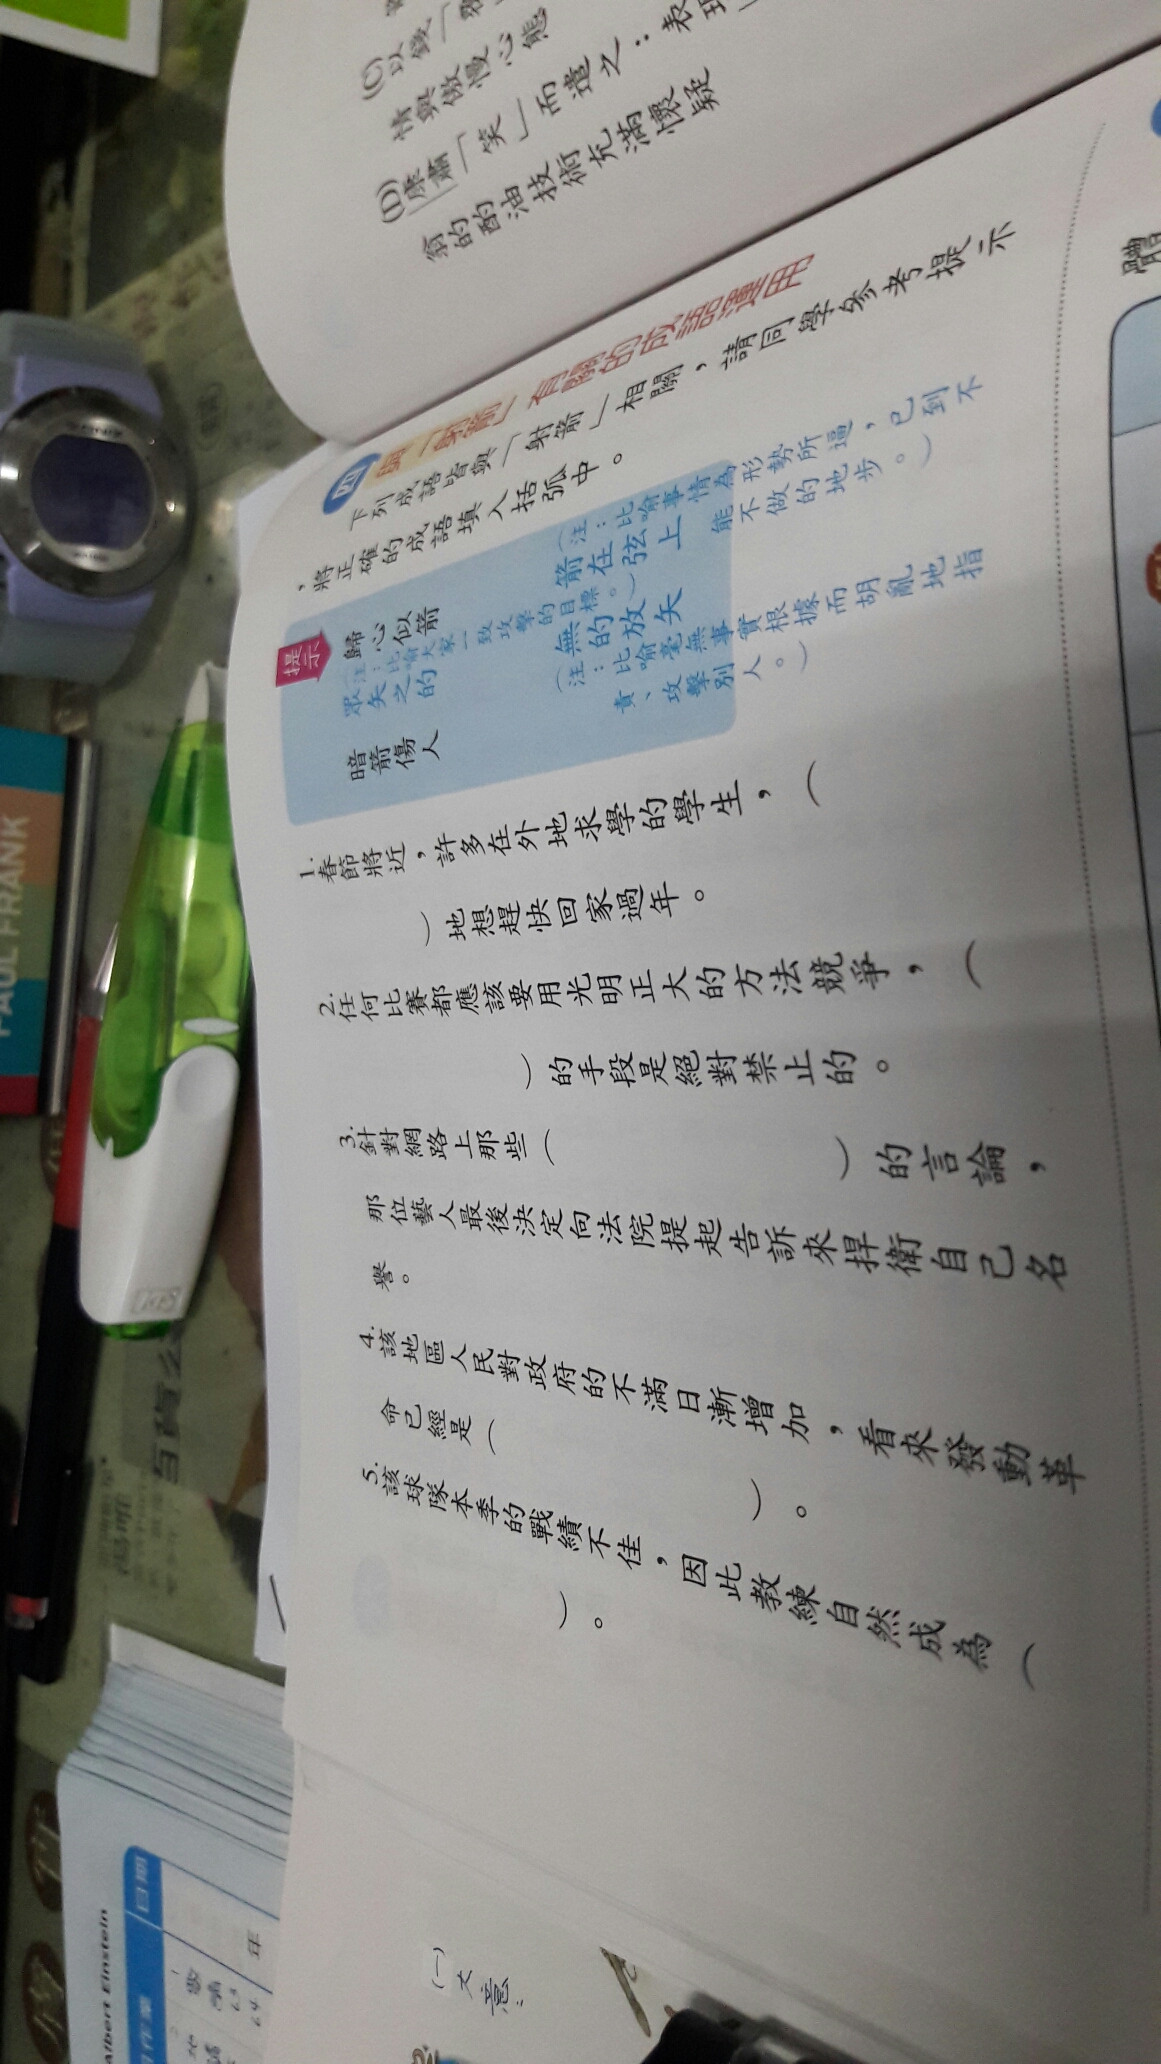 (C)以錢「
情與傲慢心態
(D)康肅「笑」而遣之：表現
翁的酌油技術充滿懷疑
四 與「射箭」有關的成語運用
下列成語皆與「射箭」相關，請同學參考提示
，將正確的成語填入括弧中。
提示
歸心似箭
箭在弦上
（注：比喻事情為形勢所逼，已到不
能不做的地步。）
眾矢之的
（注：比喻大家一致攻擊的目標。）
無的放矢
（注：比喻毫無事實根據而胡亂地指
責、攻擊別人。）
暗箭傷人
1.春節將近，許多在外地求學的學生，（
）地想趕快回家過年。
2.任何比賽都應該要用光明正大的方法競爭，（
）的手段是絕對禁止的。
3.針對網路上那些（ ）的言論，
那位藝人最後決定向法院提起告訴來捍衛自己名
譽。
4.該地區人民對政府的不滿日漸增加，看來發動革
命已經是（ ）。
5.該球隊本季的戰績不佳，因此教練自然成為（
）。
(一)文意
體
PAUL FRANK
Albert Einstein
日期
年